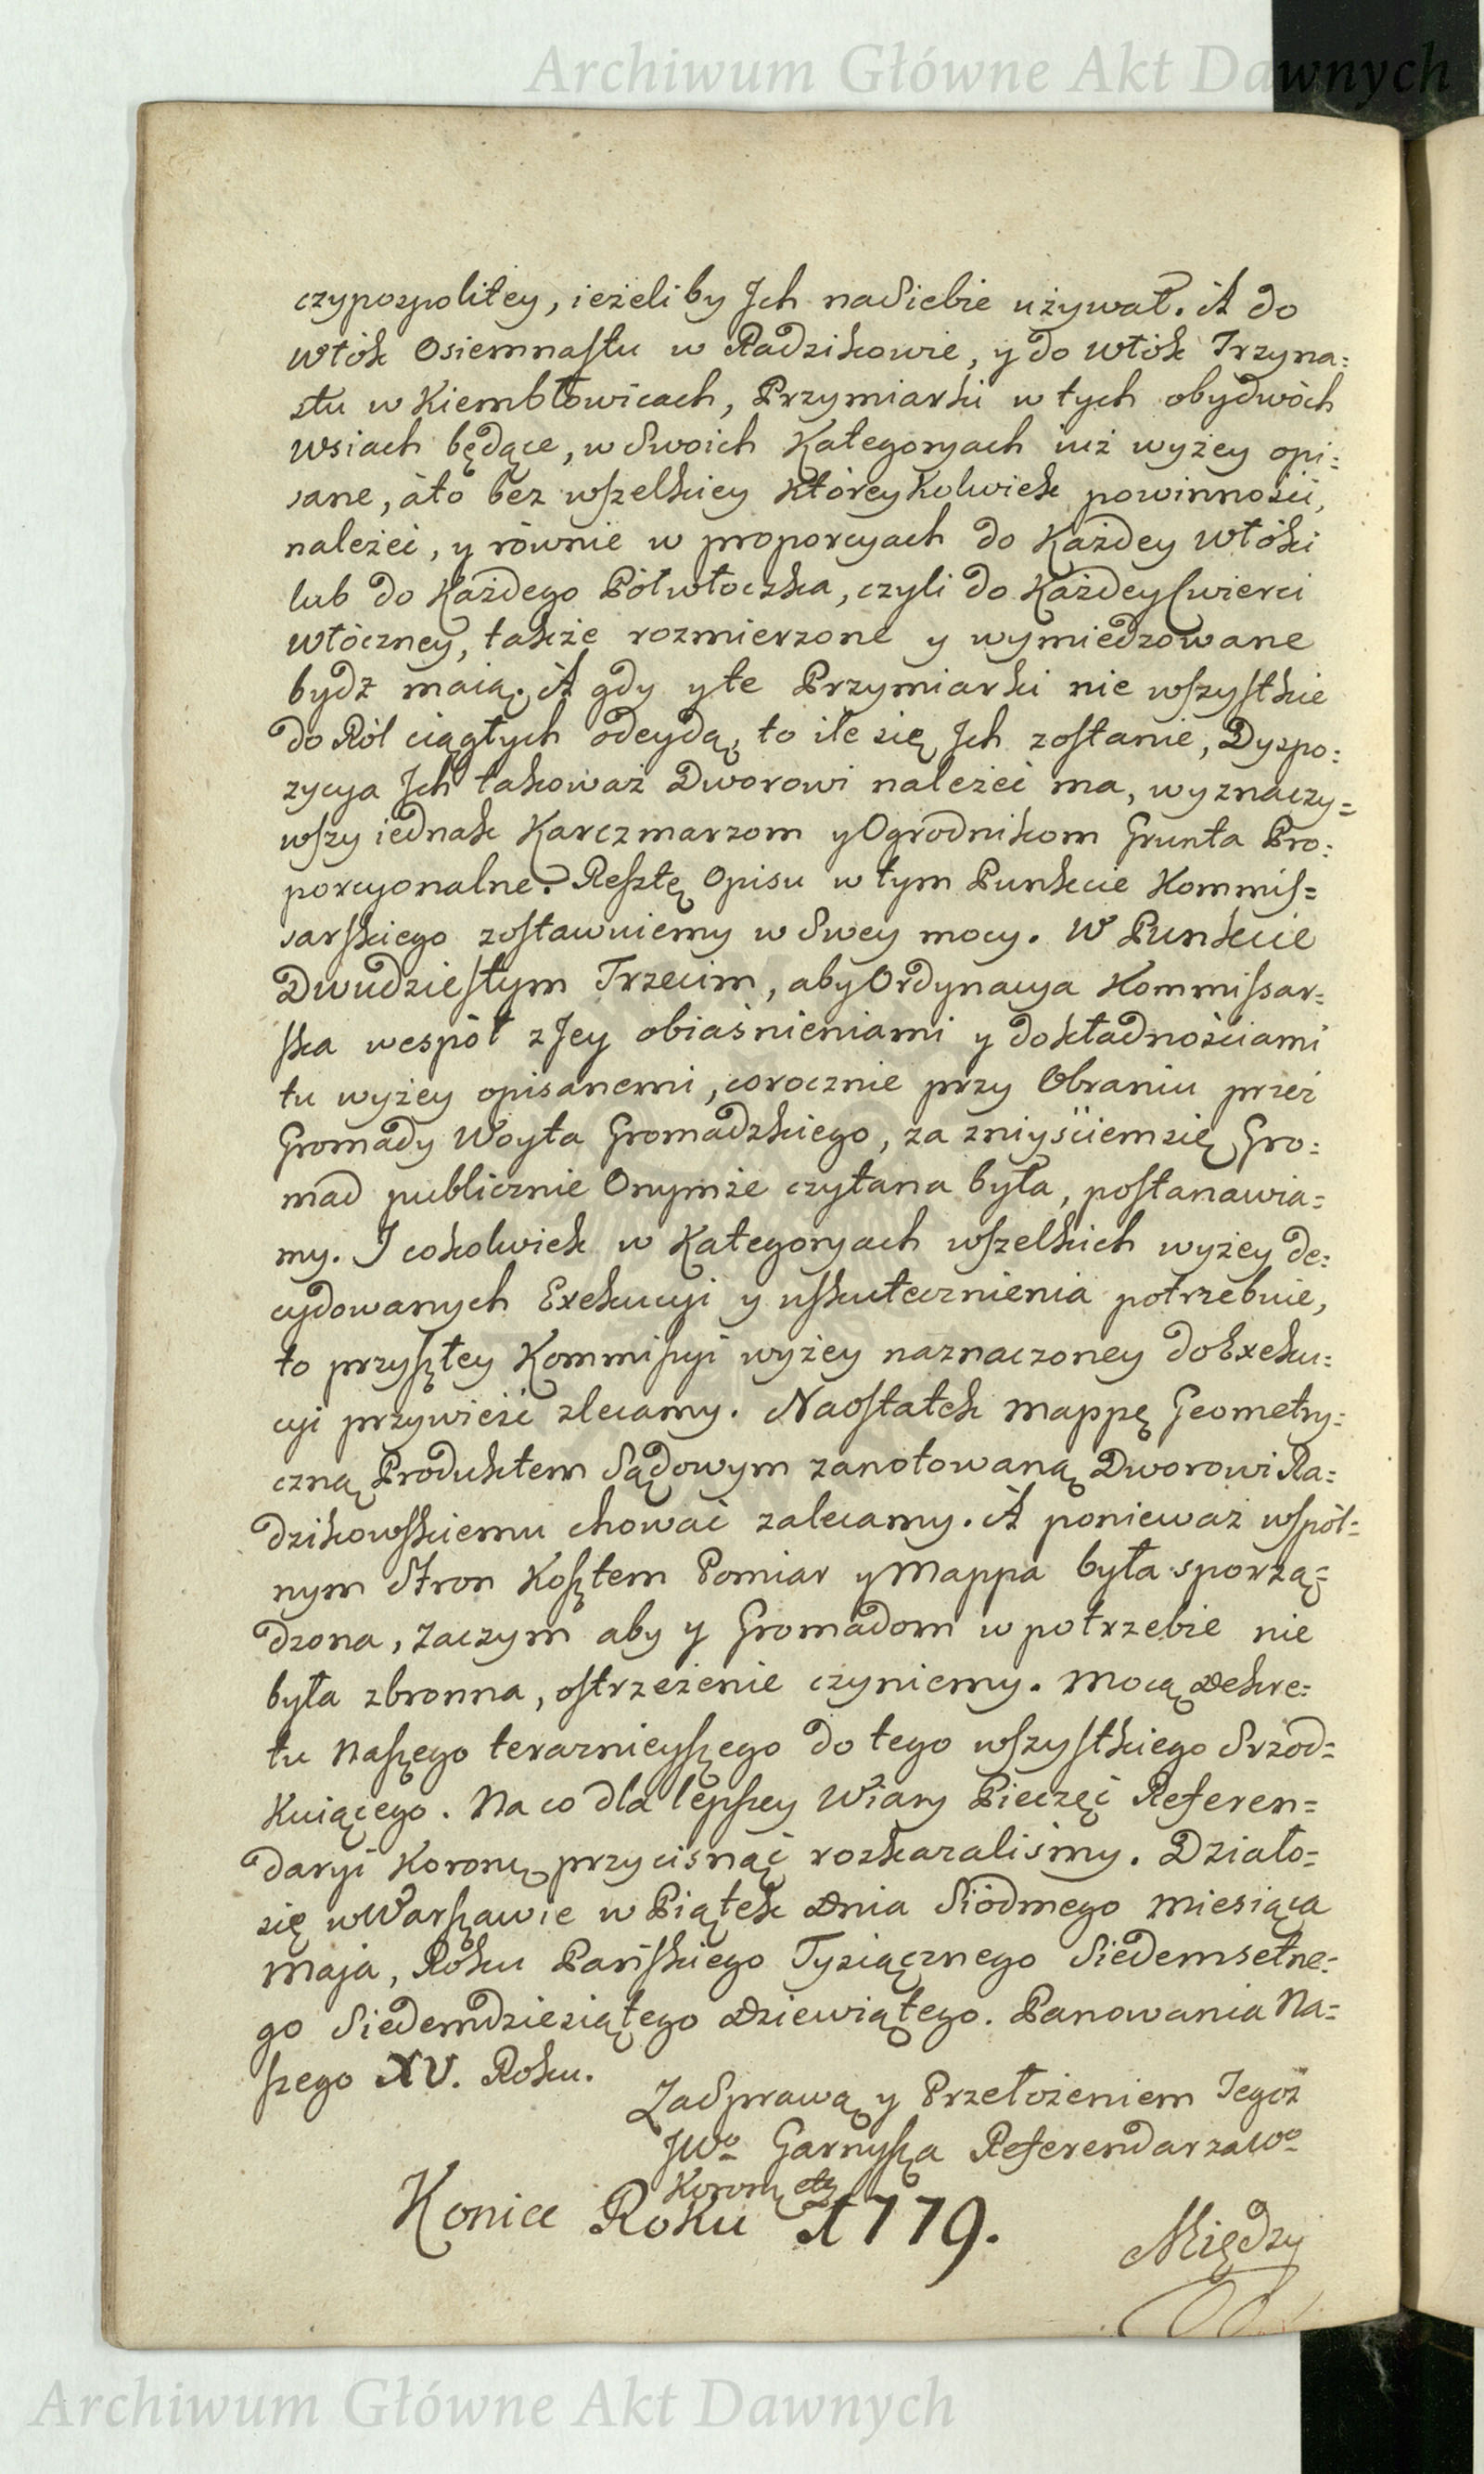 Archiwum Główne Akt Dawnych
czypospolitey, ieżeliby Jch naSiebie używał. A do
Włók Osiemnastu w Radzikowie, y do Włók Trzyna=
stu w Kiembłowicach, Przymiarki w tych obydwóch
wsiach będące, w Swoich Kategoryach iuż wyżey opi=
sane, áto bez wszelkiey którey kolwiek powinności,
należeć, y równie w proporcyach do Każdey Włóki
lub do Każdego Półwłoczka, czyli do Każdey Cwierci
Włóczney, także rozmierzone y wymiedzowane
bydź maią. A gdy y te Przymiarki nie wszystkie
do Ról ciągłych odeydą, to ile się Jch zostanie, Dyspo=
zycya Jch takoważ Dworowi należeć ma, wyznaczy=
wszy iednak Karczmarzom y Ogrodnikom Grunta Pro=
porcyonalne. Resztę Opisu w tym Punkcie Kommis=
sarskiego zostawuiemy w Swey mocy. W Punkcie
Dwudziestym Trzecim, aby Ordynacya Kommissar=
ska wespół z Jey obiaśnieniami y dokładnościami
tu wyżey opisanemi, corocznie przy Obraniu przez
Gromady Woyta Gromadzkiego, za zniyściem się Gro=
mad publicznie Onymże czytana była, postanawia=
my. I cokolwiek w Kategoryach wszelkich wyżey de=
cydowanych Exekucyi y uskutecznienia potrzebuie,
to przyszłey Kommissyi wyżey naznaczoney do Exeku=
cyi przywieść zlecamy. Naostatek Mappę Geometry=
czną Produktem Sądowym zanotowaną Dworowi Ra=
dzikowskiemu chować zalecamy. A ponieważ wspól=
nym Stron Kosztem Pomiar y Mappa była sporzą=
dzona, zaczym aby y Gromadom w potrzebie nie
była zbronna, ostrzeżenie czyniemy. Mocą Dekre=
tu Naszego teraznieyszego do tego wszystkiego Srzod=
kuiącego. Na co dla lepszey Wiary Pieczęć Referen=
daryi Koronn. przycisnąć rozkazaliśmy. Działo=
się w Warszawie w Piątek Dnia Siódmego Miesiąca
Maja, Roku Pańskiego Tysiącznego Siedemsetne=
go Siedemdziesiątego Dziewiątego. Panowania Na=
szego XV. Roku.
Za Sprawą y Przełożeniem Tegoż
JWo Garnysza Referendarza Wo
Koronn etz
Koniec Roku 1779.
Między
Archiwum Główne Akt Dawnych